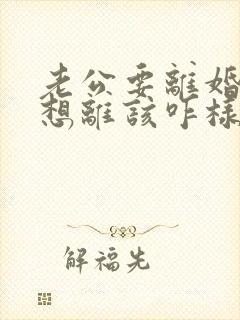 老公要離婚
想離該咋樣
解福先